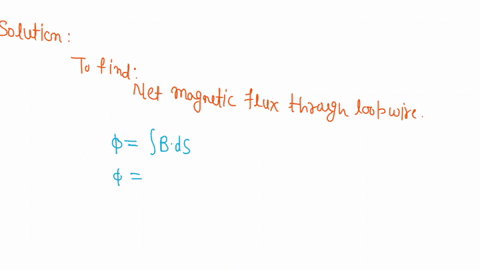 Solution:
To find:
Net magnetic flux through loopwire.
ϕ = ∫B·dS
ϕ =